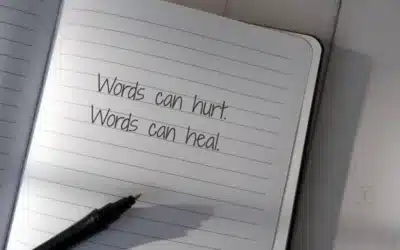 Words can hurt.
Words can heal.